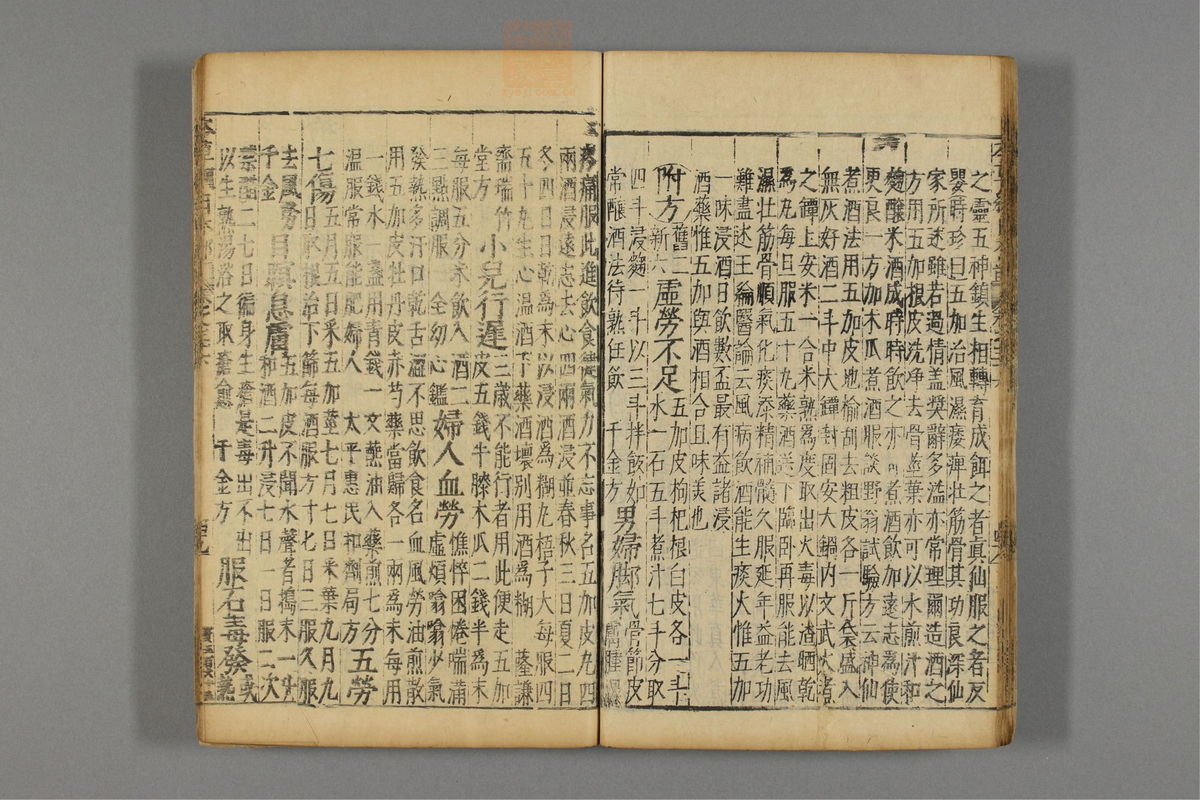 之靈五神鎮生相轉育成餌之者真仙服之者反
嬰時珍曰五加治風濕痿痺壯筋骨其功良深仙
家所述雖若過情蓋獎辭多溢亦常理爾造酒之
方用五加根皮洗净去骨莖葉亦可以水煎汁和
麴釀米酒成時時飲之亦可煮酒飲加遠志為使
更良一方加木瓜煮酒服談野翁試驗方云神仙
煮酒法用五加皮地榆刮去粗皮各一斤袋盛入
無灰好酒二斗中大罈封固安大鍋内文武火煮
之罈上安米一合米熟為度取出火毒以渣晒乾
為丸每旦服五十丸藥酒送下臨卧再服能去風
濕壯筋骨順氣化痰添精補髓久服延年益老功
難盡述王綸醫論云風病飲酒能生痰火惟五加
一味浸酒日飲數盃最有益諸浸
酒藥惟五加與酒相合且味美也
附方舊二新六虛勞不足五加皮枸杞根白皮各一斗
水一石五斗煮汁七斗分取
四斗浸麴一斗以三斗拌飯如
常釀酒法待熟任飲 千金方 男婦脚氣骨節皮
膚腫
疼痛服此進飲食健氣力不忘事名五加皮丸四
兩酒浸遠志去心四兩酒浸並春秋三日夏二日
冬四日日乾為末以浸酒為糊丸梧子大每服四
五十丸空心溫酒下藥酒壞別用酒為糊 薩謙
齋瑞竹
堂方 小兒行遲三歲不能行者用此便走五加
皮五錢牛膝木瓜二錢半為末
每服五分米飲入酒二
三點調服 全幼心鑑 婦人血勞憔悴困倦喘滿
虛煩噏噏少氣
發熱多汗口乾舌澀不思飲食名血風勞油煎散
用五加皮牡丹皮赤芍藥當歸各一兩為末每用
一錢水一盞用青錢一文蘸油入藥煎七分
溫服常服能肥婦人 太平惠民和劑局方 五勞
七傷五月五日采五加莖七月七日采葉九月九
日取根治下篩每酒服方寸匕日三服久服
去風勞 目瞑息膚五加皮不聞水聲者搗末一升
千金 和酒二升浸七日一日服二次
禁醋二七日徧身生瘡是毒出不出
以生熟湯浴之取瘡愈 千金方 服石毒發或
熱